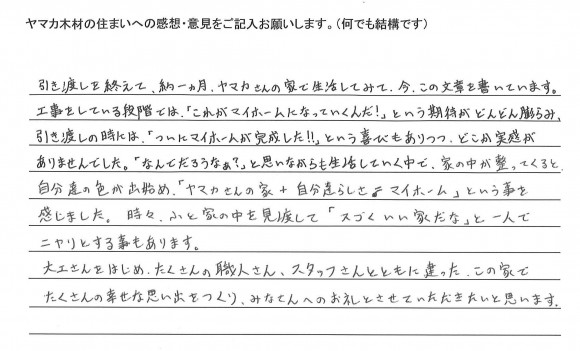 ヤマカ木材の住まいへの感想・意見をご記入お願いします。（何でも結構です）
引き渡しを終えて、約一ヵ月、ヤマカさんの家で生活してみて、今、この文章を書いています。
工事をしている段階では、「これがマイホームになっていくんだ！」という期待がどんどん膨らみ、
引き渡しの時には、「ついにマイホームが完成した!!」という喜びもありつつ、どこか実感が
ありませんでした。「なんでだろうなぁ？」と思いながらも生活していく中で、家の中が整ってくると、
自分達の色が出始め、「ヤマカさんの家 + 自分達らしさ = マイホーム」という事を
感じました。 時々、ふと家の中を見渡して「スゴくいい家だな」と一人で
ニヤリとする事もあります。
大工さんをはじめ、たくさんの職人さん、スタッフさんとともに建った、この家で
たくさんの幸せな思い出をつくり、みなさんへのお礼とさせていただきたいと思います。